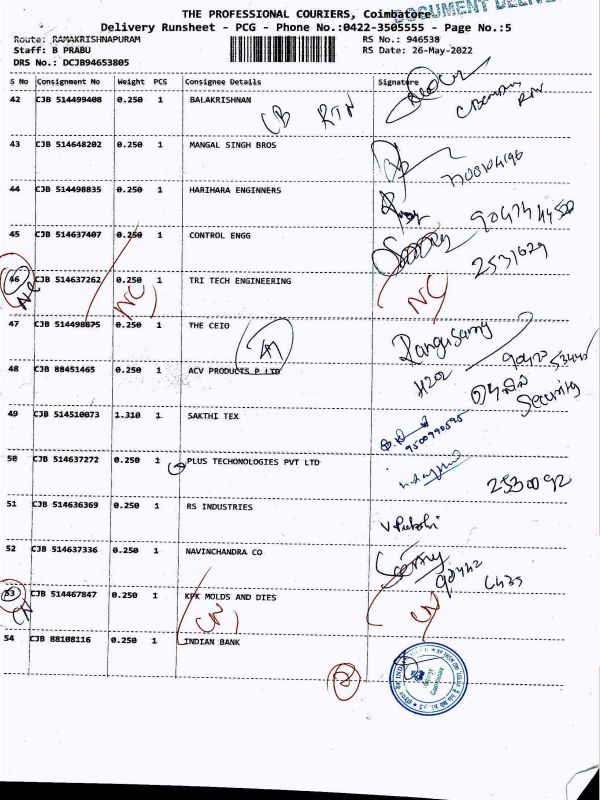 THE PROFESSIONAL COURIERS, Coimbatore
DOCUMENT
Delivery Runsheet - PCG - Phone No.:0422-3505555 - Page No.:5
Route: RAMAKRISHNAPURAM RS No.: 946538
Staff: B PRABU RS Date: 26-May-2022
DRS No.: DCJB94653805
S No Consignment No Weight PCS Consignee Details Signature
42 CJB 514499408 0.250 1 BALAKRISHNAN
CB RTN
43 CJB 514648202 0.250 1 MANGAL SINGH BROS
44 CJB 514498835 0.250 1 HARIHARA ENGINNERS
45 CJB 514637407 0.250 1 CONTROL ENGG
2531629
46 CJB 514637262 0.250 1 TRI TECH ENGINEERING
NC NC NC
47 CJB 514498875 0.250 1 THE CEIO
Rangusamy
48 CJB 88451465 0.250 1 ACV PRODUCTS P LTD
Security
49 CJB 514510073 1.310 1 SAKTHI TEX
9500990595
50 CJB 514637272 0.250 1 PLUS TECHONOLOGIES PVT LTD
2530092
51 CJB 514636369 0.250 1 RS INDUSTRIES
52 CJB 514637336 0.250 1 NAVINCHANDRA CO
53 CJB 514467847 0.250 1 KPK MOLDS AND DIES
CN CN CN
54 CJB 88108116 0.250 1 INDIAN BANK
2